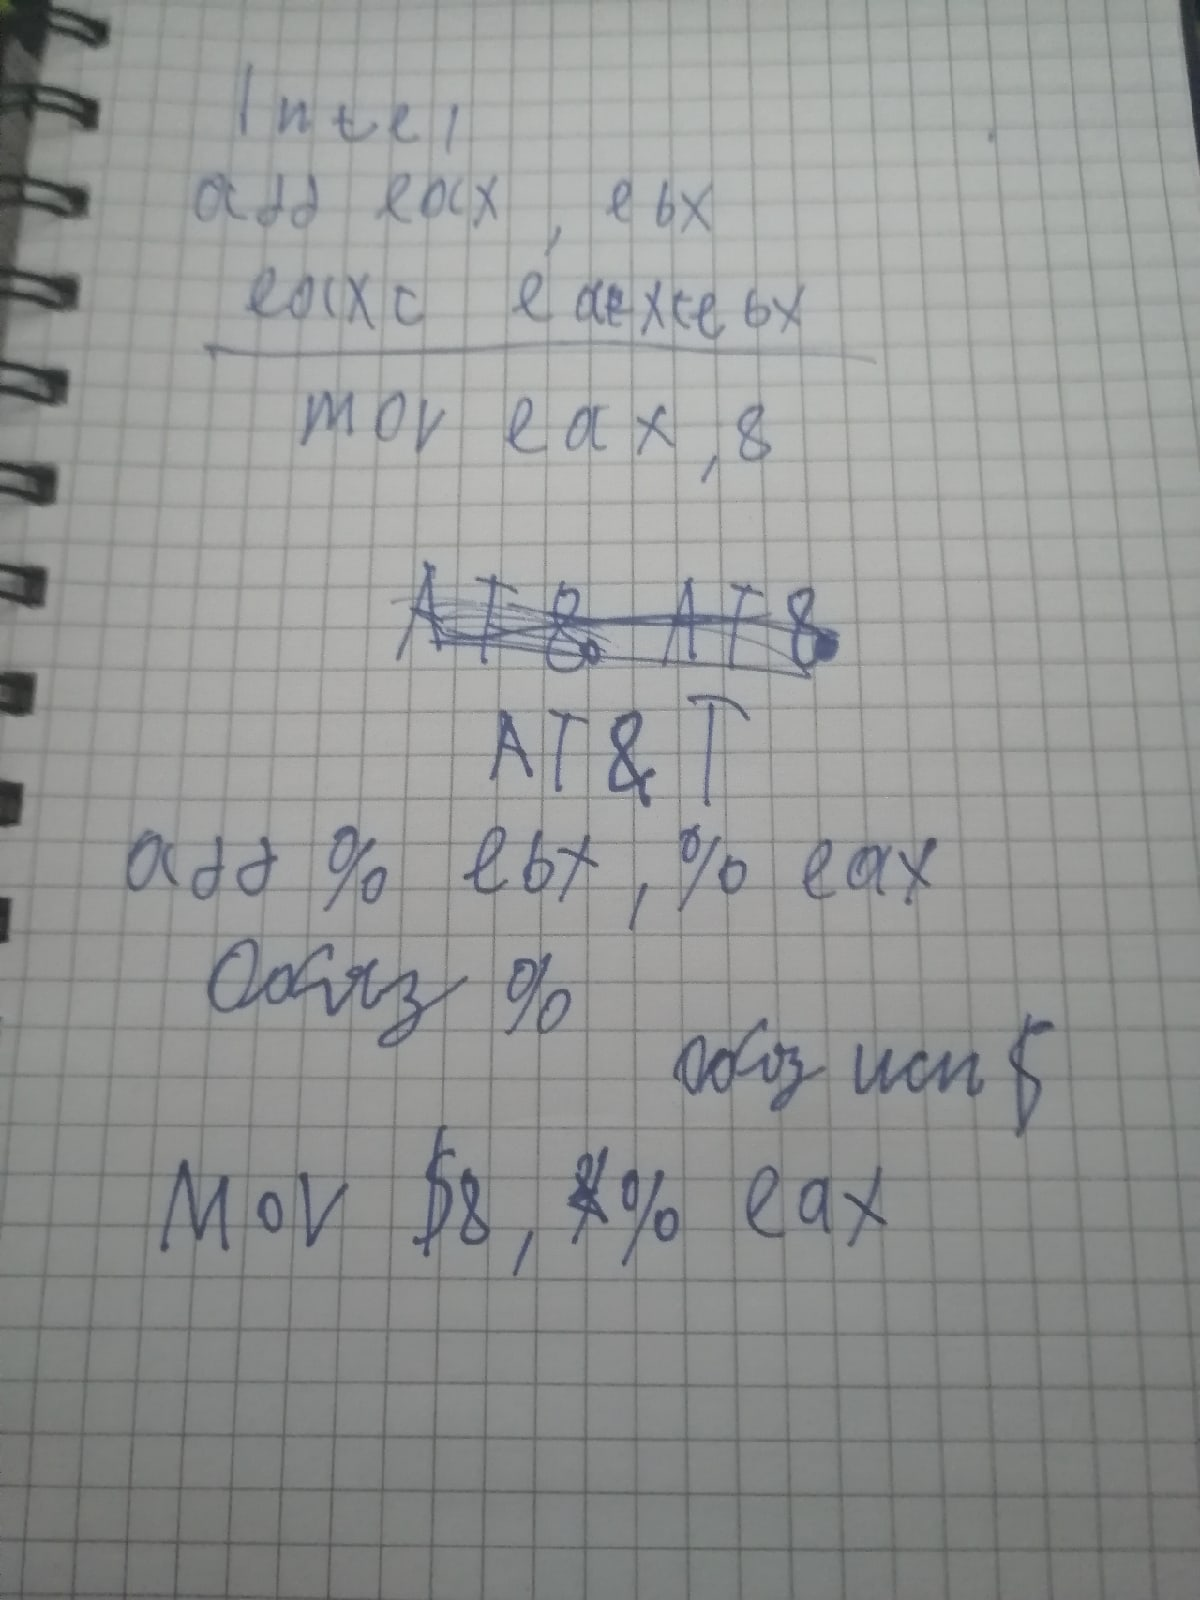 Intel
add eax, ebx
mov eax, 8
AT&T
add % ebx, % eax
Обяз %
обяз исп $
Mov $8, % eax